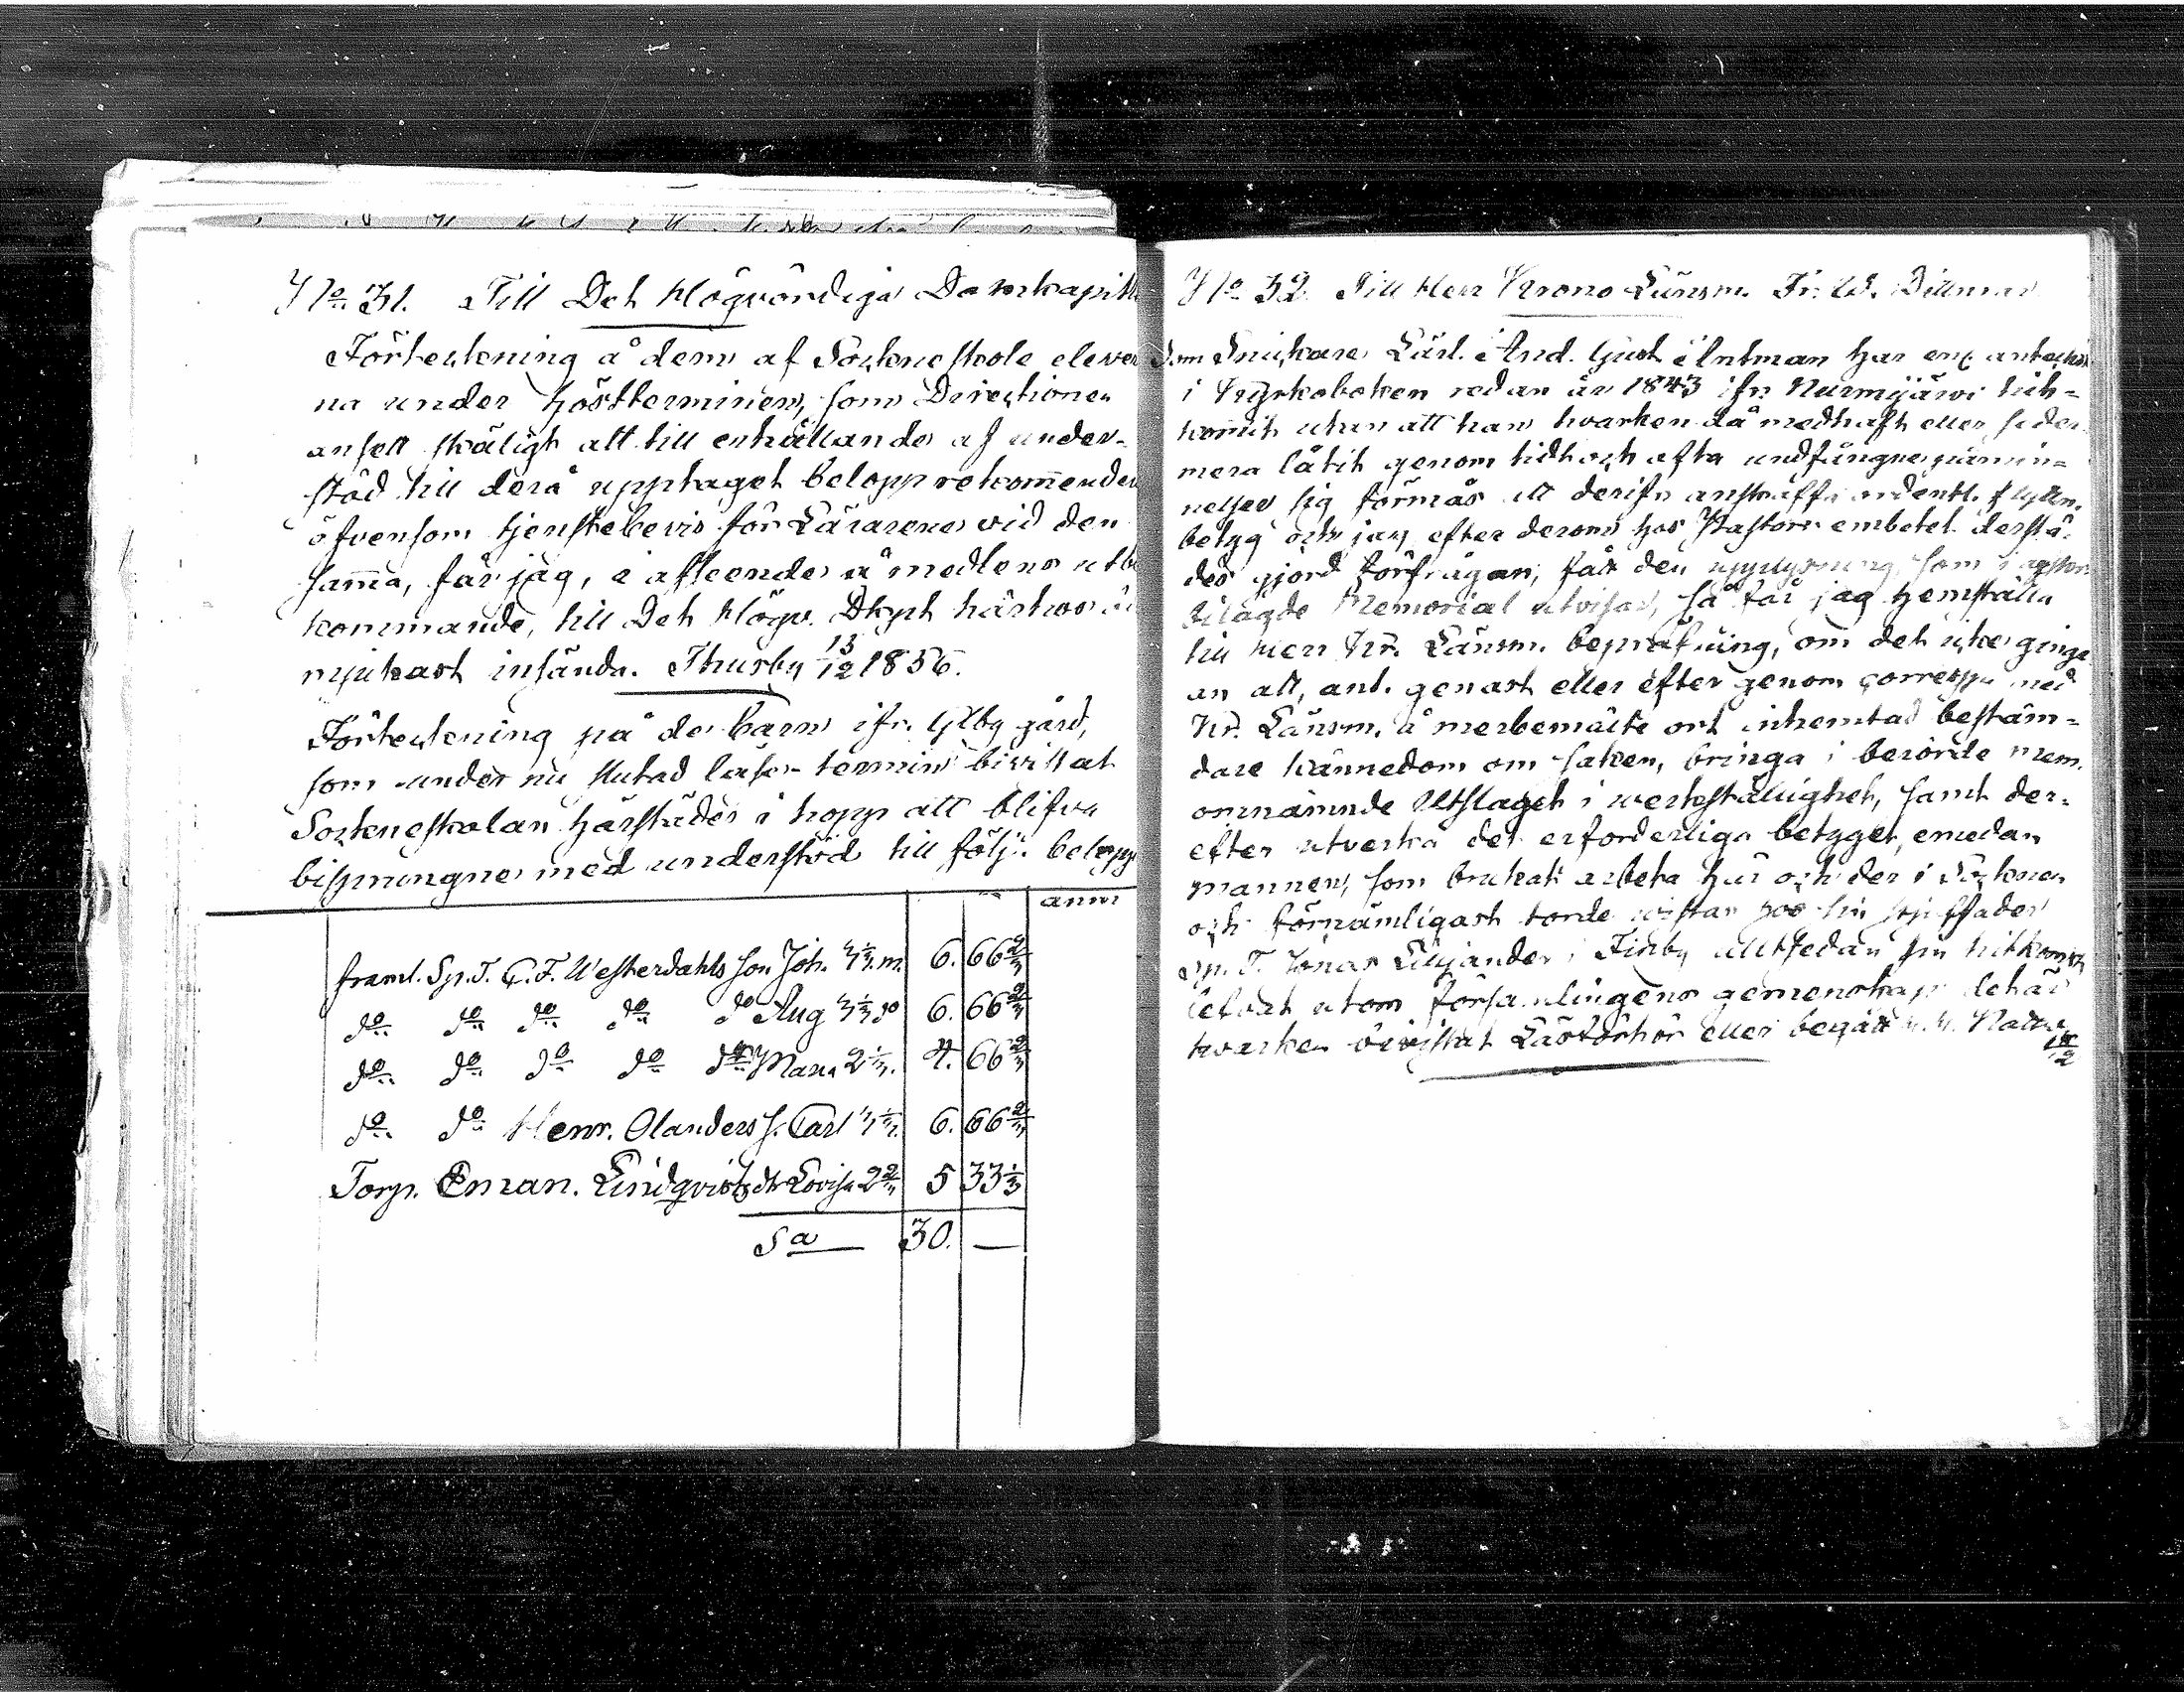 No 31. Till Det Högvördiga Domkapitl
Förteckning å dem af Sockneskole elever
na under höstterminen, som Directionen
ansett skäligt att till erhållande af under-
stöd till derå upptaget belopp rekommendera
äfvensom tjenstebevis för Lärarene vid den
samma, får jag, i afseende å medlens utbe
kommande, till Det Högv. Dkpt härhos
mjukast insända. Thusby 13/12 1856.
Förteckning på de barn ifr. Glby gård,
som under nu slutad läse-termin bivistat
Sockneskolan härstädes i hopp att blifva
bisprungne med understöd till följ. belopp
anm
framl. Sp. T. C. F. Westerdahls son Joh. 3 1/3 m. 6. 66 2/3
do do do do do Aug 3 1/3 do 6. 66 2/3
do do do do dr Maria 2 1/3. 4. 66 2/3
do do Henr. Olanders s. Carl 3 1/3. 6. 66 2/3
Torp. Eman. Lindqvists dr Lovisa 2 2/3 5 33 1/3
Sa 30. —
No 32. Till Herr Krono Länsm. Fr. W. Dillmar
Som Snickare Lärl. And. Gust. Äntman har enl. antechn
i Kyrkoboken redan år 1843 ifr. Nurmijärvi hit-
kommit utan att han hvarken då medhaft eller seder
mera låtit genom tidt och ofta undfångne påmin-
nelser sig förmås att derifr. anskaffa ordentl. flyttn.
betyg och jag efter derom hos Pastors embetet derstä-
des gjord förfrågan, fått den upplysning, som
bilagde Memorial utvisar, så får jag hemställa
till Herr Kr. Länsm. bepröfning, om det icke ginge
an att, ant. genast eller efter genom corresp. med
Kr. Länsm. å merbemälte ort inhemtad bestäm-
dare kännedom om saken, bringa i berörde mem.
omnämnde Utslaget i werkställighet, samt der-
efter utverka det erforderliga betyget, emedan
mannen, som brukat arbeta här och der i Socknen
och förnämligast torde vistas hos sin
Sp. T. Jonas Liljander i Finby alltsedan sin hitkomst
lefvat utom församlingens gemenskap, det är
hvarken bivistat Läsförhör eller begått H. H. Nattv.